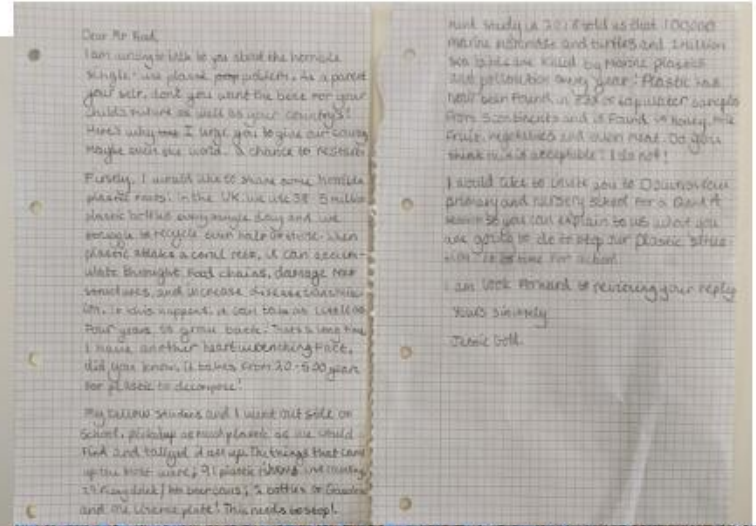 Dear Mr Food,
I am writing to talk to you about the horrible
single-use plastic problem. As a parent
your self, dont you want the best for your
childs future as well as your country's?
Here's why I urge you to give our country
Maybe even the world, a chance to restart.
Firstly, I would like to share some horrible
plastic facts: in the UK we use 38.5 million
plastic bottles every single day and we
struggle to recycle even half of those. When
plastic attaks a coral reef, it can accum-
ulate throught food chains, damage reef
structures, and increase disease
If this happens, it can take as little as
four years to grow back. That's a long time
I have another heartwrenching fact,
did you know, it takes from 20-500 years
for plastic to decompose!
My fellow students and I went out side of
School, picked up as much plastic as we could
find and tallyed it all up. The things that came
up the most were; 91 plastic
29 fizzy drink / beer cans; 2 bottles of
and one license plate! This needs to stop!
study in 2018 told us that 100,000
marine mammals and turtles and 1 million
sea birds are killed by marine plastic
and pollution every year! Plastic has
now been found in of tap water samples
from 5 continents and is found in honey,
fruit, vegetables and even meat. Do you
think this is acceptable? I do not!
I would like to invite you to
primary and nursery school for a Q and A
session so you can explain to us what you
are going to do to stop our plastic situa-
tion. It is time for action!
I am look forward to recieving your reply
Yours sincerely
Jessie Gold.